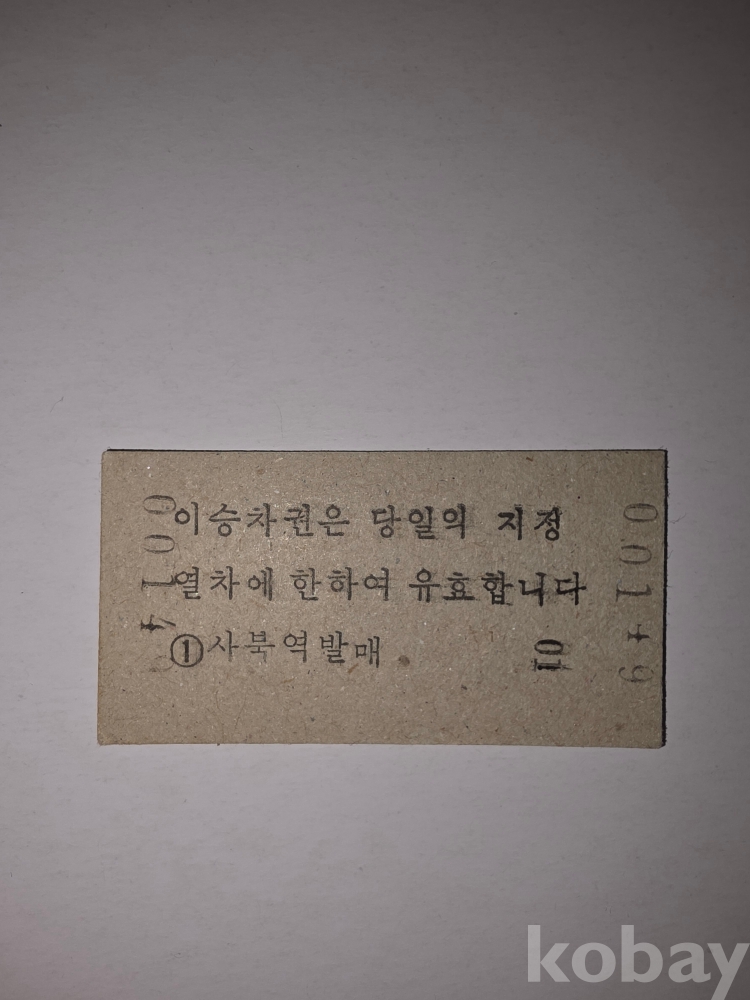 이승차권은 당일의 지정
열차에 한하여 유효합니다
①사북역발매
10
kobay